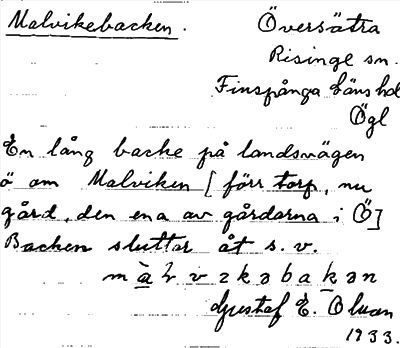 Malvikebacken. Översätra
Risinge sn.
Finspånga läns hd
Ögl
En lång backe på landsvägen
ö om Malviken [förr torp, nu
gård, den ena av gårdarna i Ö]
Backen sluttar åt s.v.
Gustaf E. Olsson
1933.